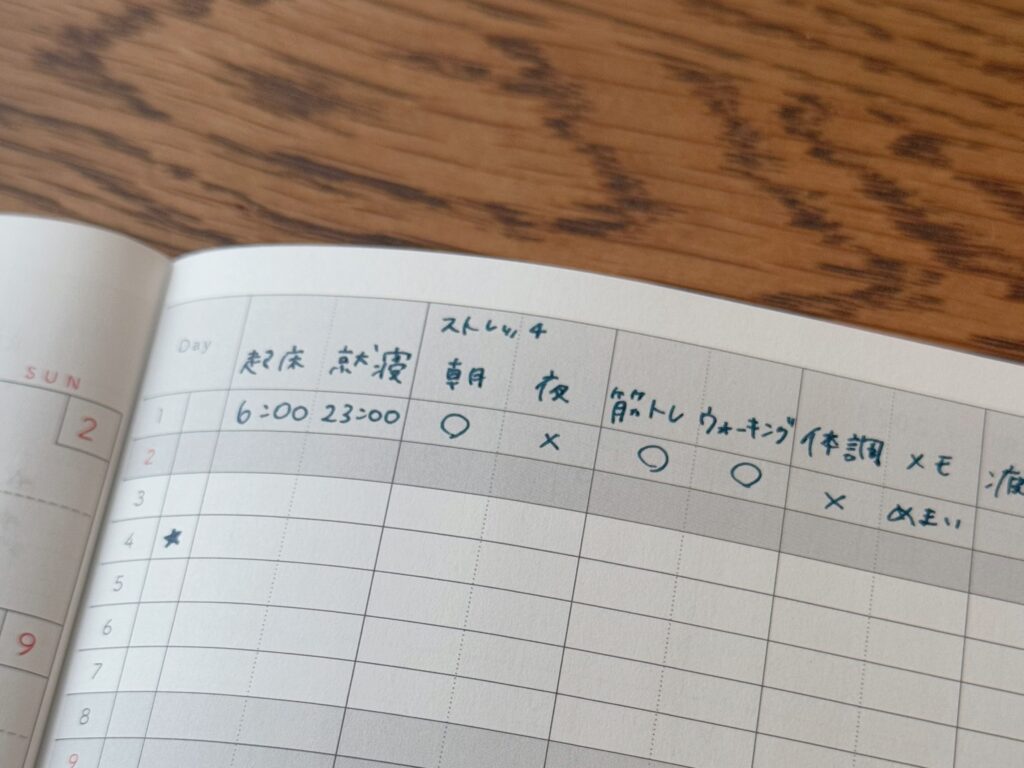 SUN
2
9
ストレッチ
Day 起床 就寝 朝 夜 筋トレ ウォーキング 体調 メモ
1 6:00 23:00 ○ × ○ ○ × めまい
2
3
4 ★
5
6
7
8
9